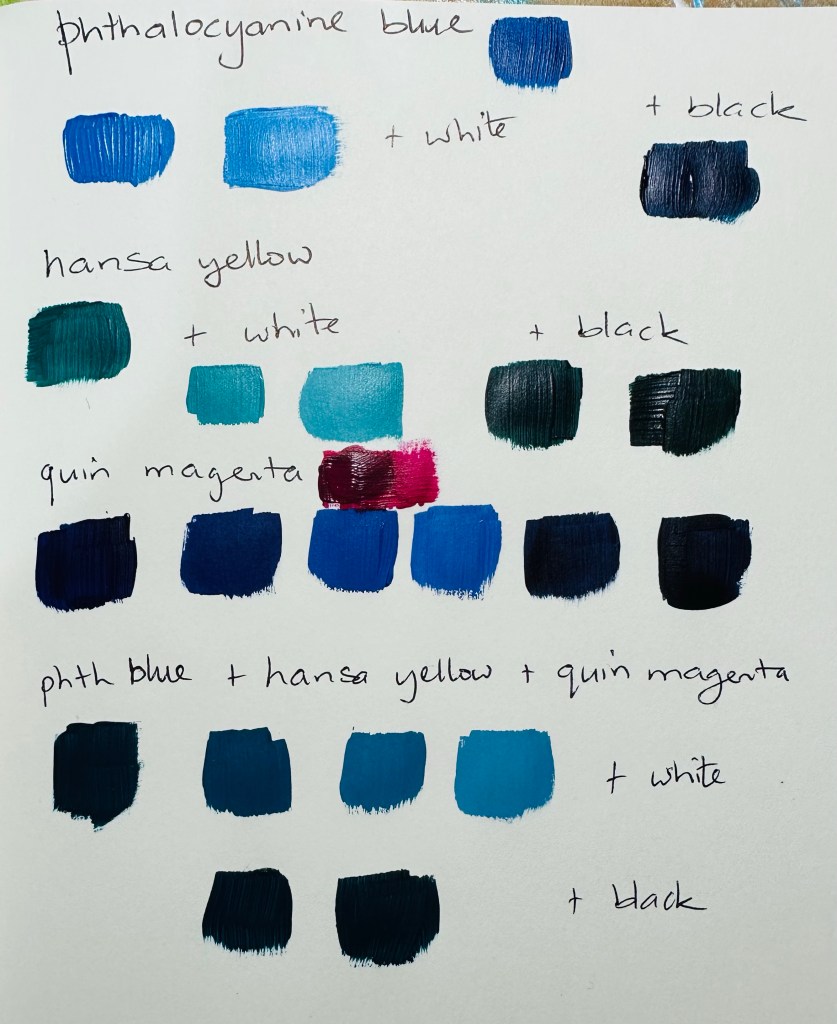 phthalocyanine blue
+ white
+ black
hansa yellow
+ white + black
quin magenta
phth blue + hansa yellow + quin magenta
+ white
+ black